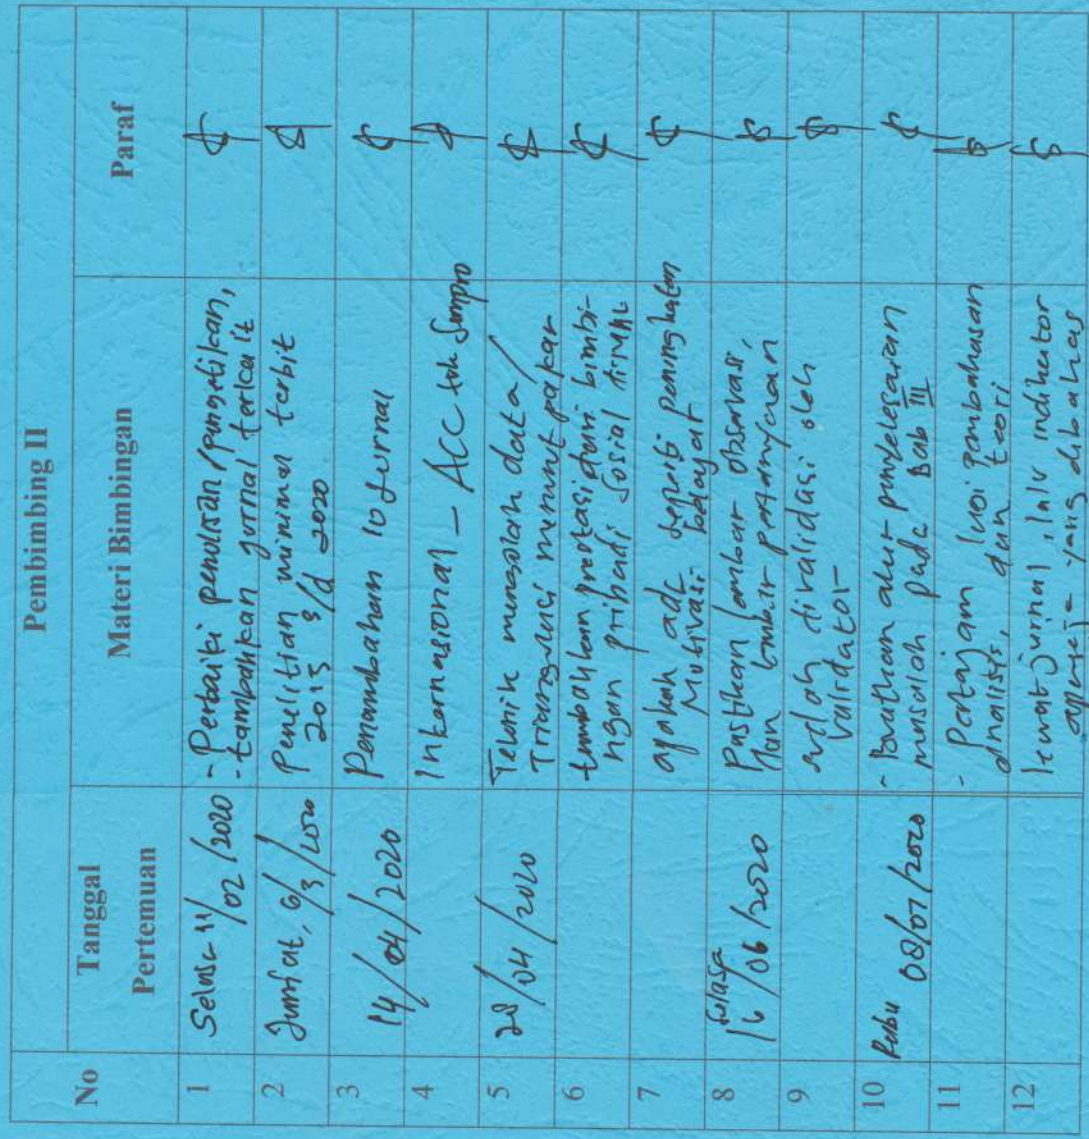 Pembimbing II
No
Tanggal
Pertemuan
Materi Bimbingan
Paraf
1
Selasa 11/02/2020
- Perbaiki penulisan/pengetikan,
- tambahkan jurnal terkait
2
Jum'at, 6/3/2020
Penelitian minimal terbit
2015 s/d 2020
3
14/04/2020
Penambahan 10 Jurnal
4
Internasional - ACC Sempro
5
28/04/2020
Teknik data/
Triangulasi menurut pakar
6
bimbi-
ngan pribadi sosial
7
apakah ada seperti peningkatan
Motivasi belajar
8
Selasa
16/06/2020
Pastikan lembar observasi,
dan lembar pertanyaan
9
sudah divalidasi oleh
Validator
10
Rabu 08/07/2020
- Buatkan alur penyelesaian
masalah pada Bab III
11
- Pertajam lagi pembahasan
analisis, dan teori
12
lewat jurnal, lalu indikator
yang dibahas